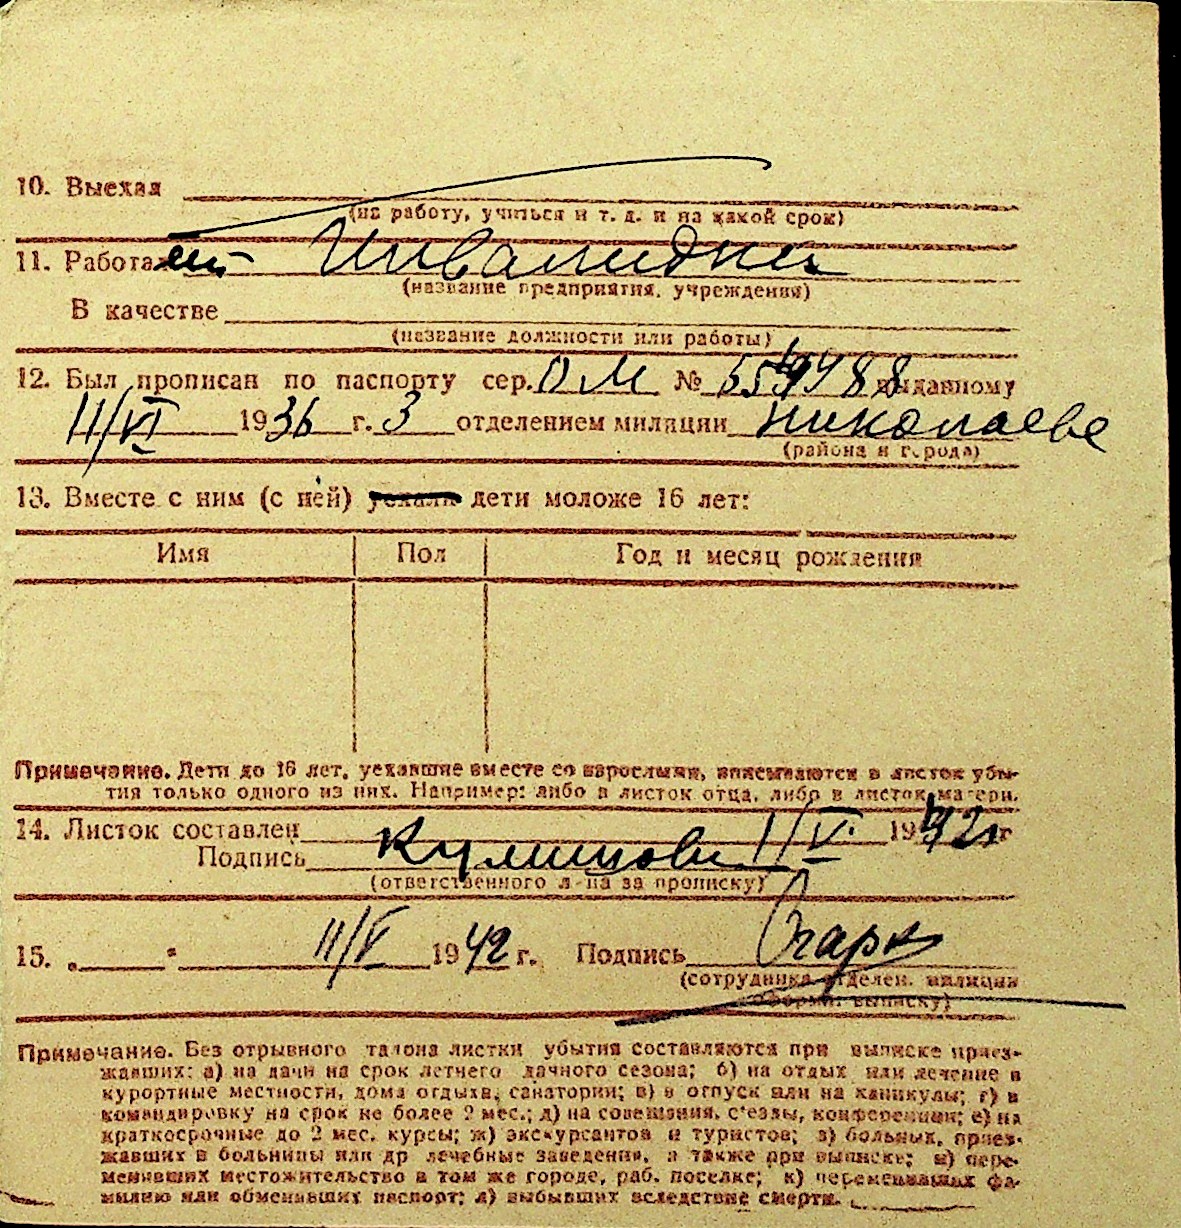 10. Выехал
(на работу, учиться и т. д. и на какой срок)
11. Работает Инвалидка
(название предприятия, учреждения)
В качестве
(название должности или работы)
12. Был прописан по паспорту сер. ОМ № выданному
III/VI 1936 г. 3 отделением милиции Николаеве
(района и города)
13. Вместе с ним (с ней) уехали дети моложе 16 лет:
Имя Пол Год и месяц рождения
Примечание. Дети до 16 лет, уехавшие вместе со взрослыми, вписываются в листок убы-
тия только одного из них. Например: либо в листок отца, либо в листок матери.
14. Листок составлен 1/V 1942 г
Подпись
(ответственного л-ца за прописку)
15. „ " II/V 1942 г. Подпись
(сотрудника отделен. милиции
оформ. выписку)
Примечание. Без отрывного талона листки убытия составляются при выписке приез-
жавших: а) на дачи на срок летнего дачного сезона; б) на отдых или лечение в
курортные местности, дома отдыха, санатории; в) в отпуск или на каникулы; г) в
командировку на срок не более 2 мес.; д) на совещания, с'езды, конференции; е) на
краткосрочные до 2 мес. курсы; ж) экскурсантов и туристов; з) больных, приез-
жавших в больницы или др лечебные заведения, а также при выписке; и) пере-
менивших местожительство в том же городе, раб. поселке; к) переменивших фа-
милию или обменявших паспорт; л) выбывших вследствие смерти.